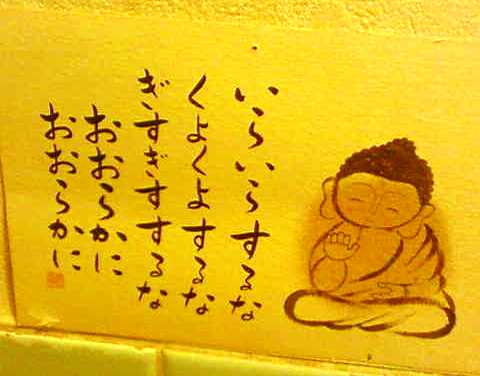 いらいらするな
くよくよするな
ぎすぎすするな
おおらかに
おおらかに